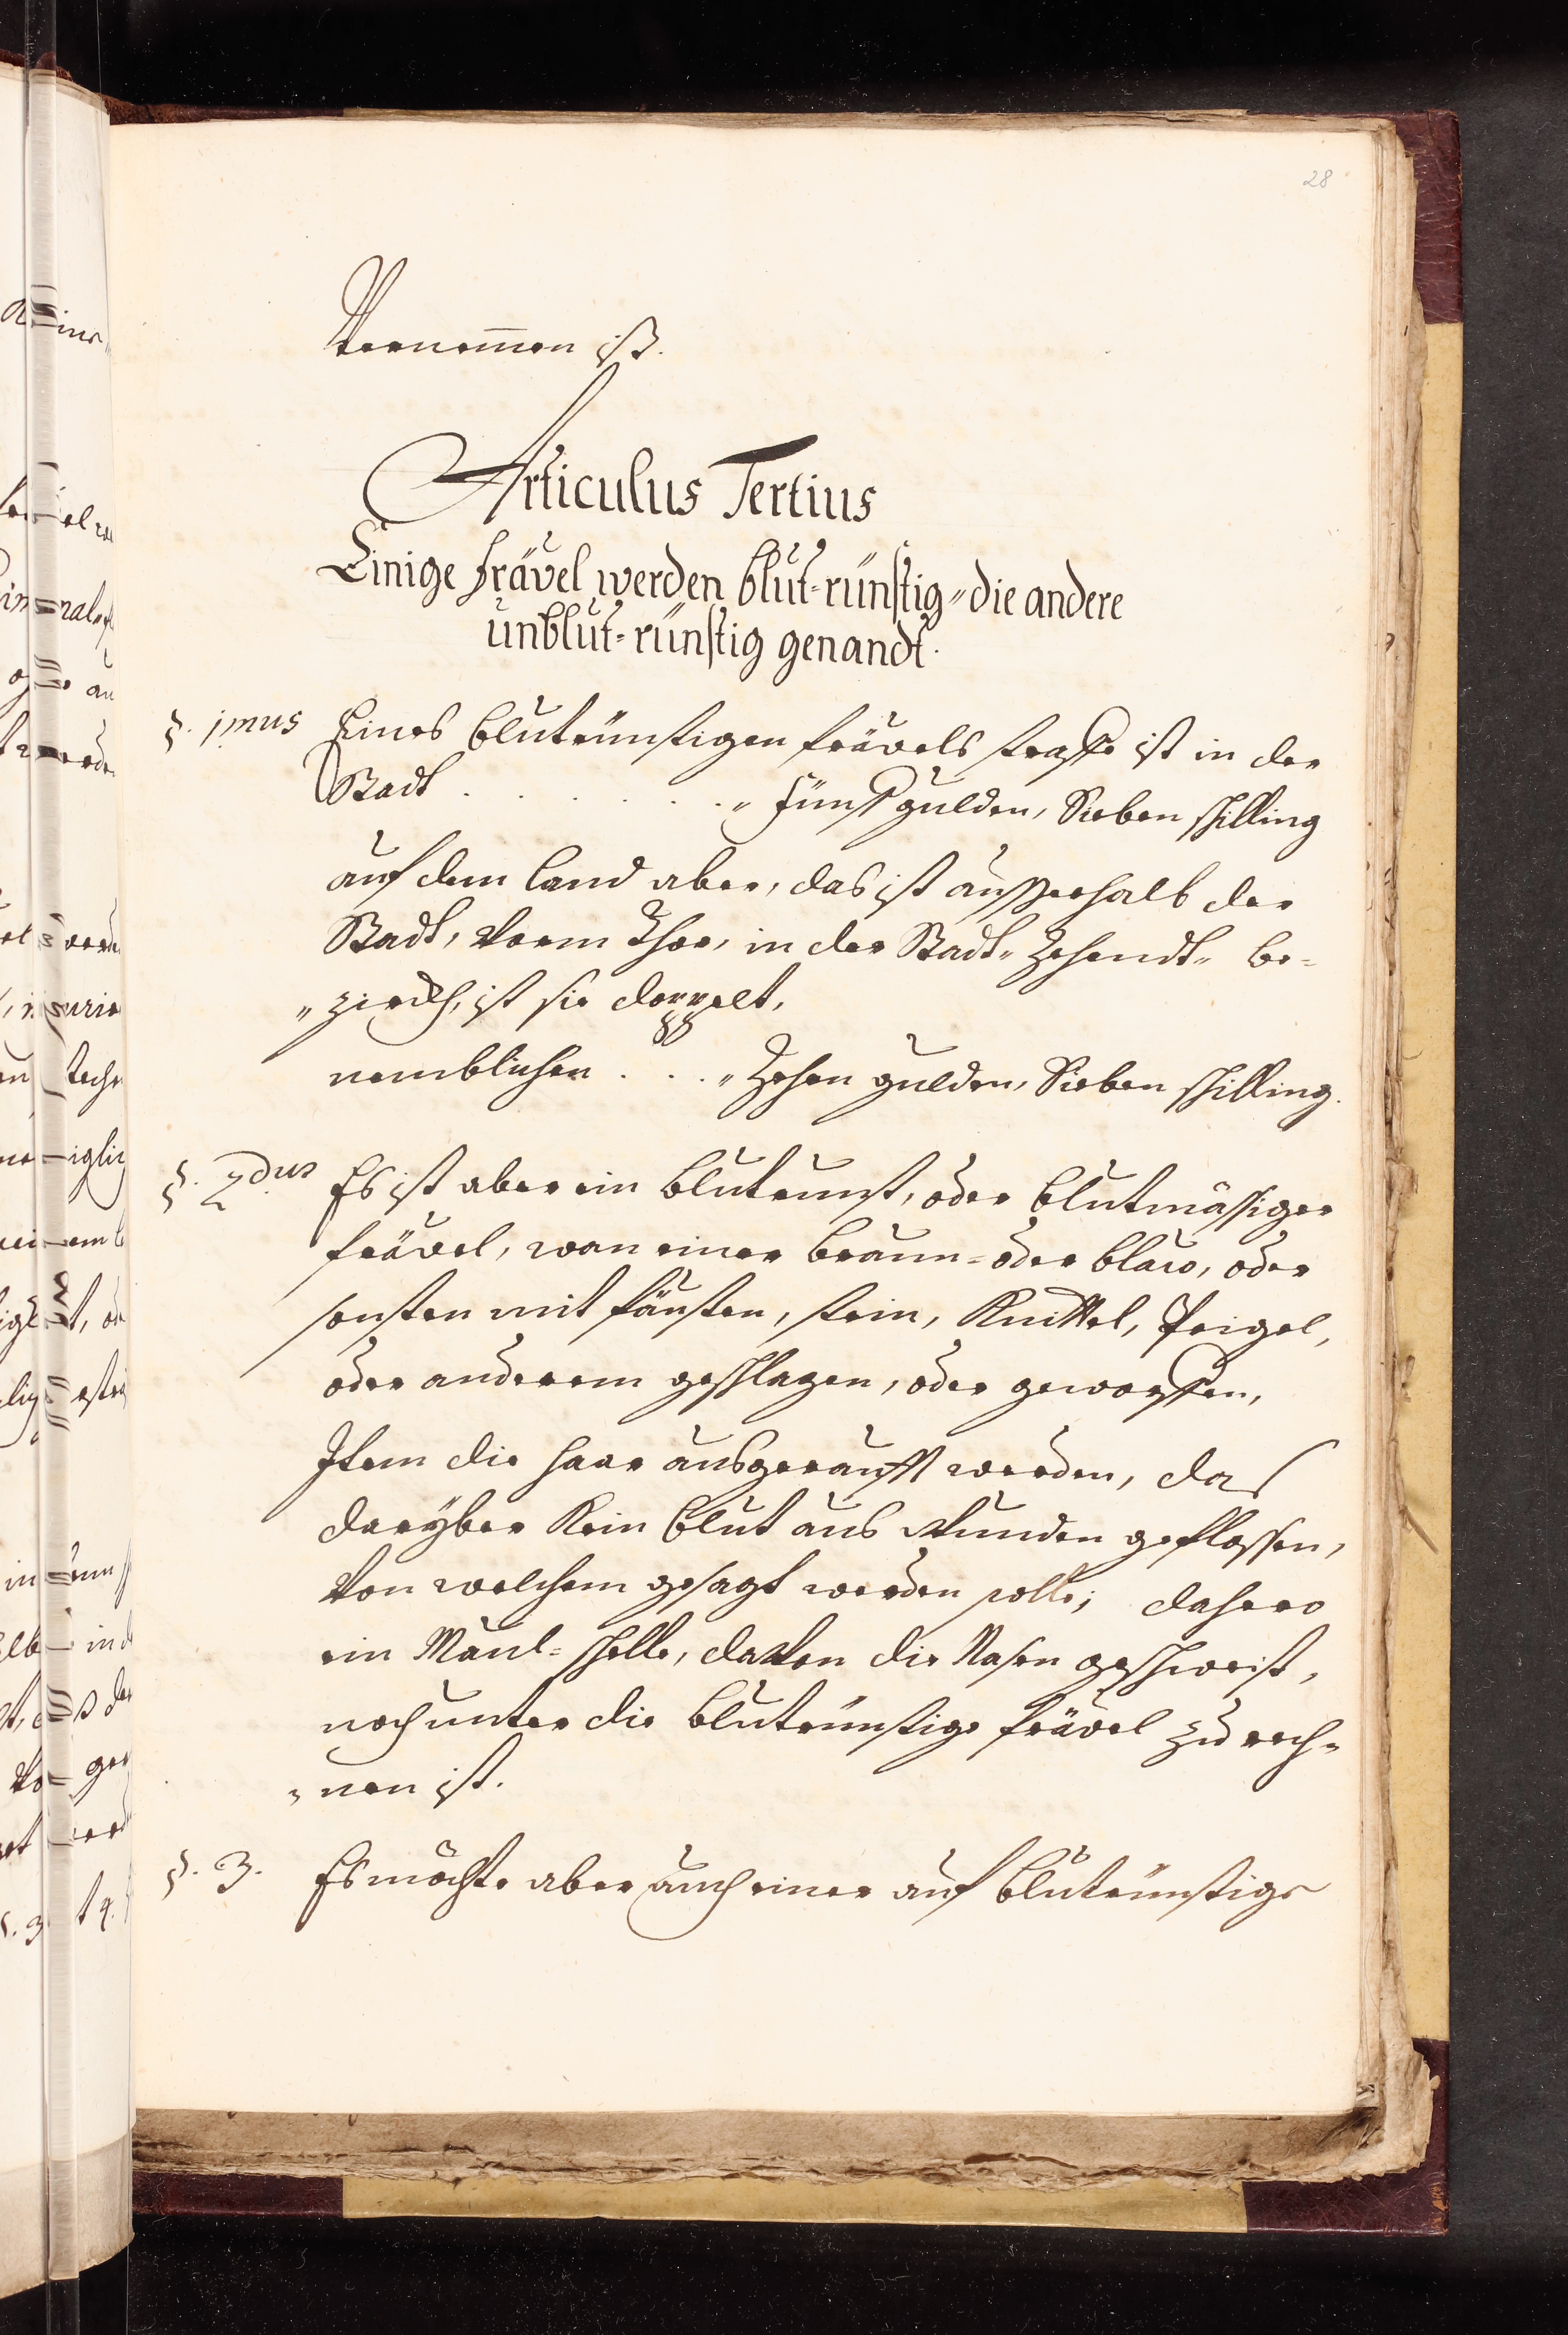 28
Vernom̅en ist.
Articulus Tertius
Einige frävel werden blut-rünstig „ die andere
unblut-rünstig genandt.
§. 1mus Eines blutrünstigen frävels straffe ist in der
Stadt . . . . . . . „ Fünff gulden, Sieben schilling
auf dem land aber, das ist ausserhalb der
Stadt, vorm Thor, in der Stadt„ Zehendt„ be=
„zirckh, ist sie doppelt,
nemblichen . . . „ Zehen gulden, Sieben schilling.
§. 2dus Es ist aber ein blutrunst, oder blutmässiger
frävel, wan einer braun= oder blaw, oder
sonsten mit fäusten, stein, Knittel, Preigel,
oder anderem geschlagen, oder geworffen,
Item die haar ausgerauft werden, das
darÿber kein blut aus Wunden geflossen,
von welchem gesagt werden solle; dahero
ein Maul=schelle, davon die Nasen geschweist,
noch unter die blutrünstige frävel zu rech„
„nen ist.
§. 3. Es möchte aber auch einer auf blutrünstige